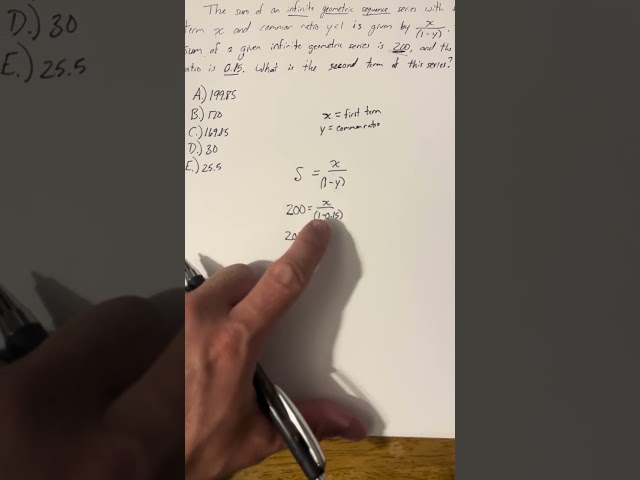 The sum of an infinite geometric sequence series with
term x and common ratio y<1 is given by x/(1-y).
sum of a given infinite geometric series is 200, and the
ratio is 0.15. What is the second term of this series?
A.) 199.85
B.) 170
C.) 169.85
D.) 30
E.) 25.5
x = first term
y = common ratio
S = x/(1-y)
200 = x/(1-0.15)
D.) 30
E.) 25.5